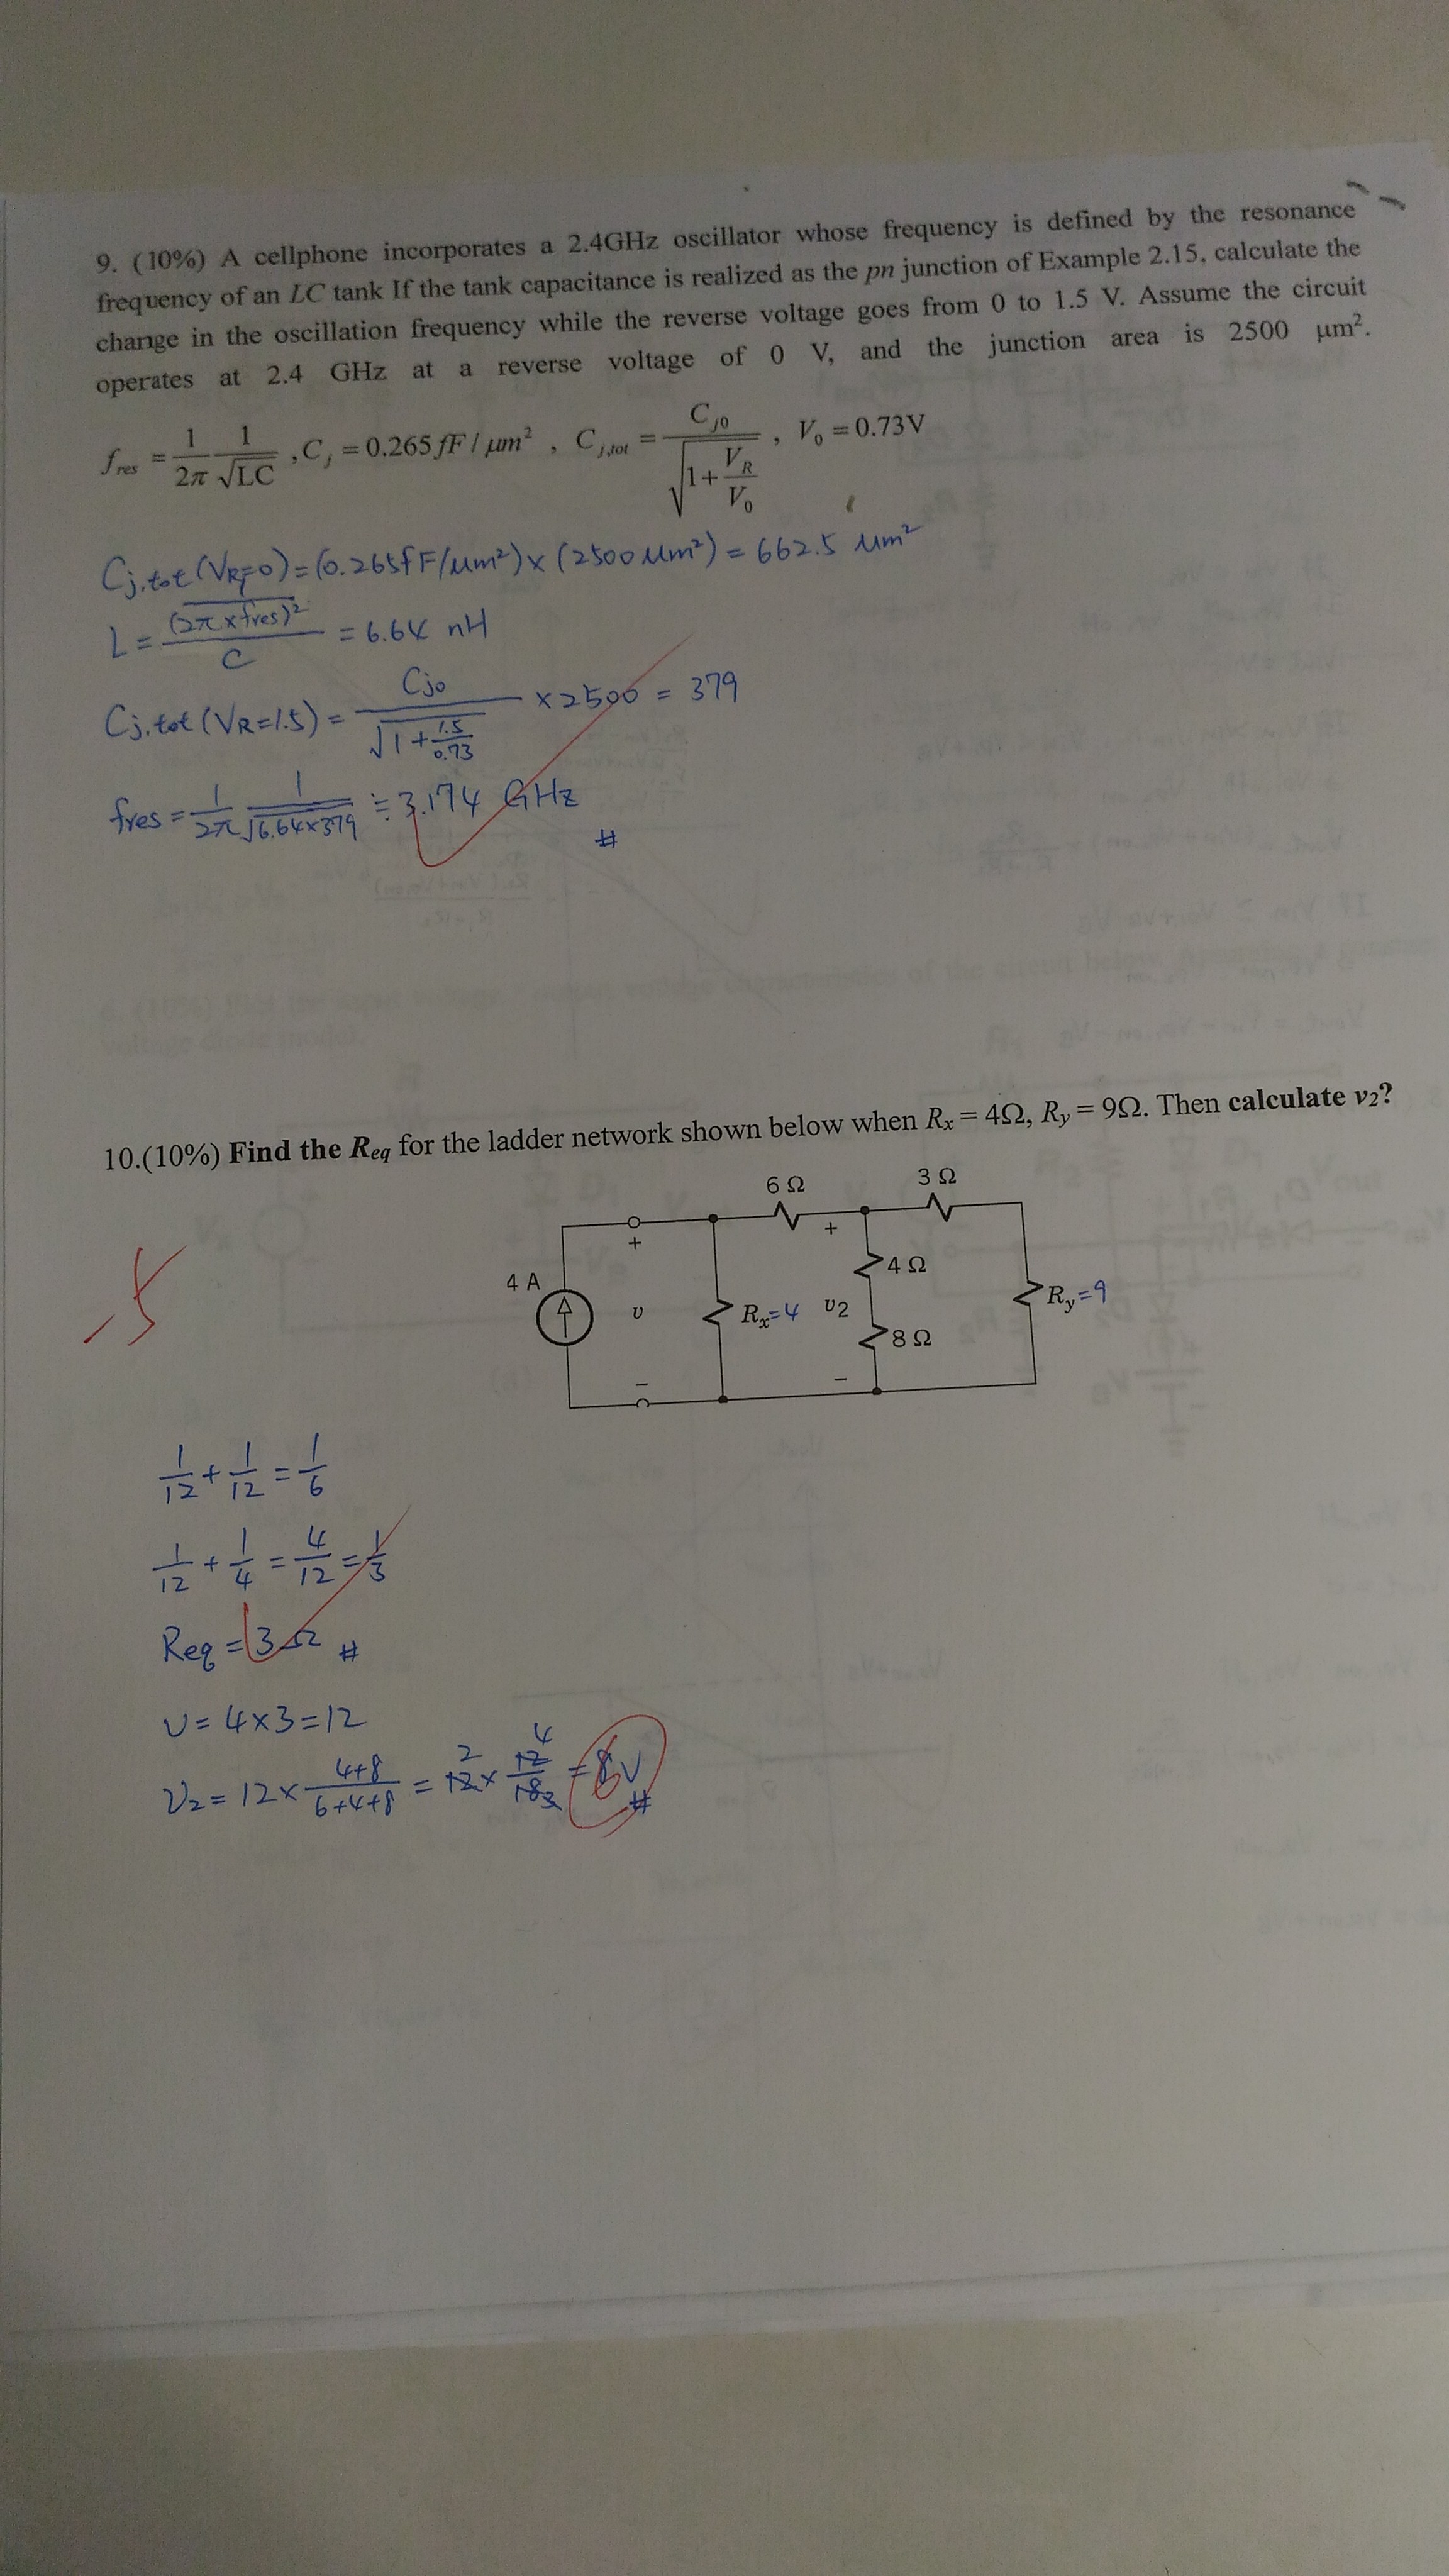 9. (10%) A cellphone incorporates a 2.4GHz oscillator whose frequency is defined by the resonance
frequency of an LC tank If the tank capacitance is realized as the pn junction of Example 2.15, calculate the
change in the oscillation frequency while the reverse voltage goes from 0 to 1.5 V. Assume the circuit
operates at 2.4 GHz at a reverse voltage of 0 V, and the junction area is 2500 μm².
f_res = 1/2π 1/√LC , C_j = 0.265 fF / μm² , C_j,tot = C_j0/√(1+V_R/V_0) , V_0 = 0.73V
Cj,tot (VR=0) = (0.265fF/μm²) × (2500μm²) = 662.5 μm²
L = (2π×fres)²/C = 6.64 nH
Cj,tot (VR=1.5) = Cjo/√(1+1.5/0.73) ×2500 = 379
fres = 1/2π 1/√6.64×379 ≒ 3.174 GHz #
10.(10%) Find the Req for the ladder network shown below when Rx = 4Ω, Ry = 9Ω. Then calculate v2?
6 Ω
3 Ω
+
+
4 A
4 Ω
v
Rx=4
v2
Ry=9
8 Ω
−
−
-5
1/12 + 1/12 = 1/6
1/12 + 1/4 = 4/12 = 1/3
Req = 3Ω #
V = 4×3=12
V2 = 12× 4+8/6+4+8 = 12× 12/18 = 8V #
2
4
3
6